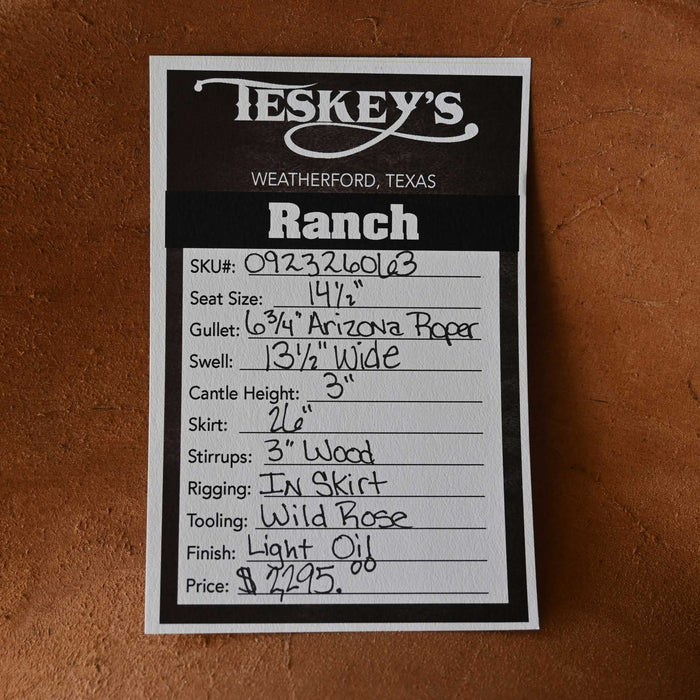 TESKEY'S
WEATHERFORD, TEXAS
Ranch
SKU#: 0923260163
Seat Size: 14½"
Gullet: 6¾" Arizona Roper
Swell: 13½" Wide
Cantle Height: 3"
Skirt: 26"
Stirrups: 3" Wood
Rigging: In Skirt
Tooling: Wild Rose
Finish: Light Oil
Price: $2295.00